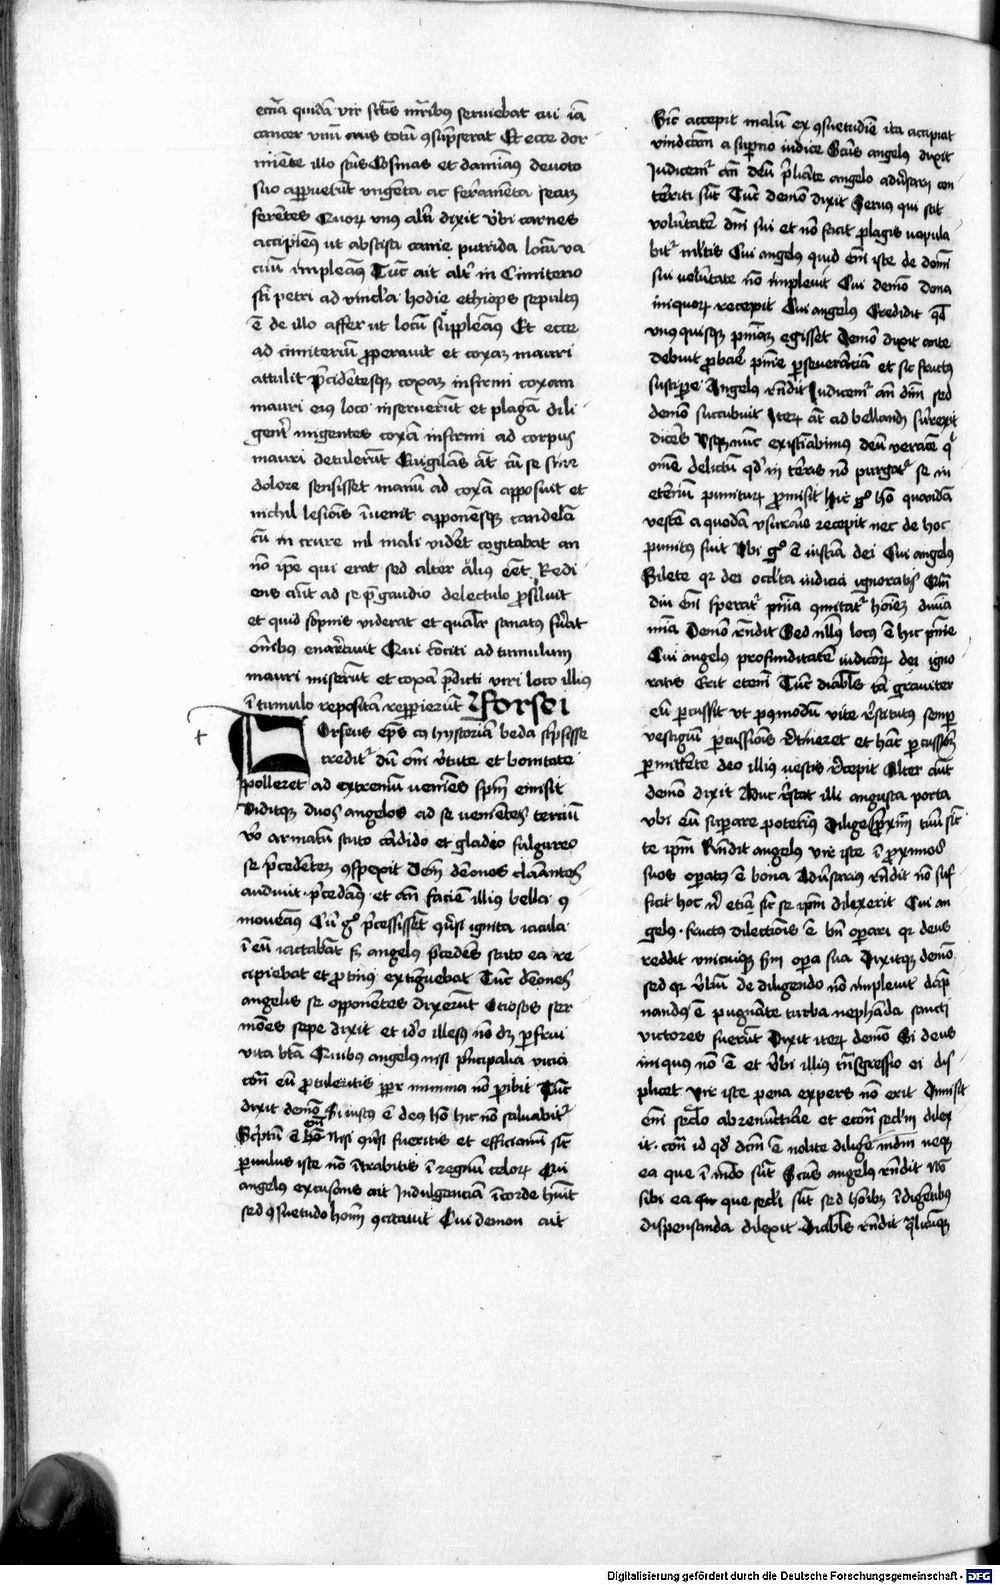 ecclesia quidā vir sctīs mr̄ibus seruiebat cui iā
cancer vnū crus totū ꝯsūpserat Et ecce dor
miēte illo scti Cosmas et damian9 deuoto
suo apparuerūt vngēta ac ferramēta secum
ferētes Quorꝝ vnus alt̄i dixit vbi carnes
accipiem9 ut abscisa carne putrida locū va
cuū impleam9 Tūc ait alt̄ in Cimiterio
scti petri ad vincl̄a hodie ethiops sepultus
ē de illo affer ut locū suppleam9 Et ecce
ad cimiteriū properauit et coxam mauri
attulit p̄cidētesqꝫ coxam infirmi coxam
mauri eius loco inseruerūt et plagā dili
gent̄ ungentes coxā infirmi ad corpus
mauri detulerūt Euigilās āt cū se sine
dolore sensisset manū ad coxā apposuit et
nichil lesiōis īuenit apponēsqꝫ candelā
cū in crure nil mali videt cogitabat an
nō ipe qui erat sed alter alius eēt Redi
ens aūt ad se p̄ gaudio de lectulo prosiluit
et quid sōpnis viderat et qualit̄ sanatus fūat
oīnibus enarrauit Qui cōciti ad tumulum
mauri miserūt et coxā p̄dicti viri loco illius
ī tumulo repositā reppierūt Forsei
Forseus ep̄s cꝰ hystoriā beda sc̄psisse
credit᷑ dū om̄i v̄tute et bonitate
polleret ad extremū veniēs spm̄ emisit
Viditqꝫ duos angelos ad se veniētes terciū
v̄o armatū scuto cādido et gladio fulgureo
se p̄cedētem ꝯspexit Dein dēones clāātes
audiuit p̄cedam9 et an̄ faciē illius bella ꝯ
moueam9 Cū gͦ p̄cessissēt q̄si ignita iacula
ī eū iactabāt sꝫ angelus p̄cedēs scuto ea re
cipiebat et protinus extīguebat Tūc dēones
angelis se opponētes dixerūt Ociosos ser
mōes sepe dixit et iō illesus nō dꝫ perfrui
vita bt̄a Quibus angelus nisi p̄ncipalia vicia
cōt̄ eū protuleritis propt̄ minima nō peribit Tūc
dixit demō Si iustus ē deus hō hic nō saluabit᷑
Sc̄ptū ē eī Nisi ꝯūsi fueritis et efficiamī sic̄
paruulus iste nō ītrabitis ī regnū celorꝝ Cui
angelus excusans ait Indulgenciā ī corde huīt
sed ꝯsuetudo hoīm ꝯcitauit Cui demon ait
Sic̄ accepit malū ex ꝯsuetudīe ita accipiat
vindictam a superno iudice Sctūs angelus dixit
Judicem᷑ an̄ deū p̄liante angelo aduersarij con
tēriti sūt Tūc demō dixit Seruus qui scit
volūtatē dn̄i sui et nō facit plagis vapula
bit᷑ multis Cui angelus quid em̄ iste de dom̄i
sui volūtate nō impleuit Cui demō dona
iniquorꝝ recepit Cui angelus Credidit qd̄
vnusquisqꝫ pn̄iam egisset Demō dixit ante
debuit probare pn̄ie perseuerāciā et sic fructus
suscipere Angelus rn̄dit Iudicem᷑ an̄ dn̄m sed
demō succubuit Iterꝝ āt ad bellandū surrexit
dicēs Vsqꝫ nūc existīabimus deū veracē qͥ
om̄e delictū qd̄ in tērris nō purgat᷑ se in
eternū punitur promisit hic gͦ hō quandā
vestē a quodā vsurario recepit nec de hoc
punitus fuit Vbi gͦ ē iusticia dei Cui angelus
Silete qr dei occl̄ta iudicia ignoratis Qm̄
diu em̄ sperat᷑ pn̄ia comitat᷑ hoīem diuina
mia Demō rn̄dit Sed nl̄lus locus ē hic pn̄ie
Cui angelus profunditatē iudiciorꝝ dei igno
ratis Erit etenī Tūc diabl̄s tā grauiter
eū percussit ut postmodū vite restitutus semper
vestigiū percussiōis retineret et hāc percussiōem
permittēte deo illius vestis recepit Alter aūt
demō dixit Adhuc restat illi angusta porta
vbi eū superare poterimus Diliges proximū tuū sic̄
te ipm̄ Rn̄dit angelus vir iste ī proximos
suos operatus ē bona Aduersarius rn̄dit nō suf
ficit hoc nisi etiā sic̄ se ipm̄ dilexerit Cui an
gelus fructus dilectiōis ē bn̄ operari qr deus
reddit vnicuiqꝫ sm̄ opera sua Dixitqꝫ demō
sed qr v̄bū de diligendo nō impleuit dāp
nandus ē pugnāte turba nephāda sancti
victores fuerūt Dixit iterꝝ demō Si deus
iniquus nō ē et v̄bi illius trāsgressio ei dis
plicet vir iste pena expers nō erit Promisit
em̄ sed̄o abrenūciare et econ̄ secl̄m dilex
it contra id qd̄ dcm̄ ē nolite diligē mdm̄ neqꝫ
ea que ī mdo sūt Sctūs angelus rn̄dit Nō
sibi ea que secl̄i sūt sed hoībus īdigētibus
dispensanda dilexit Diabl̄s rn̄dit Qualicūqꝫ
Digitalisierung gefördert durch die Deutsche Forschungsgemeinschaft - DFG